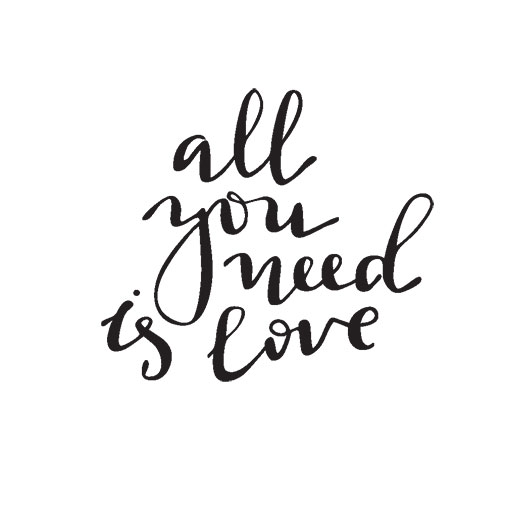 all
you
need
is love